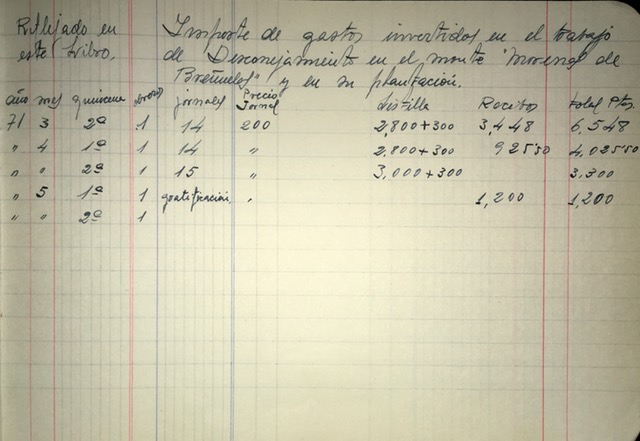 Reflejado en
este Libro.
Importe de gastos invertidos en el trabajo
de Desconejamiento en el monte "Morenos de
Breñuelos" y en su plantación.
año mes quincena obreros jornales Precio Jornal Listilla Recibos total Ptas.
71 3 2ª 1 14 200 2,800+300 3,448 6,548
" 4 1ª 1 14 " 2,800+300 925 50 4,025 50
" " 2ª 1 15 " 3,000+300 3,300
" 5 1ª 1 gratificación " 1,200 1,200
" " 2ª 1